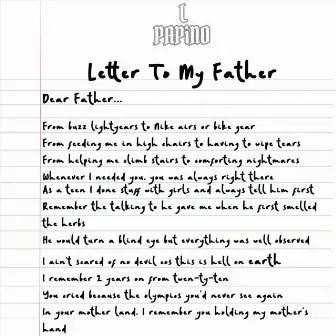 L
PAPINO
Letter To My Father
Dear Father...
From buzz lightyears to Nike airs or bike gear
From feeding me in high chairs to having to wipe tears
From helping me climb stairs to comforting nightmares
Whenever I needed you, you was always right there
As a teen I done stuff with girls and always tell him first
Remember the talking to he gave me when he first smelled
the herbs
He would turn a blind eye but everything was well observed
I ain't scared of no devil cos this is hell on earth
I remember 2 years on from twen-ty-ten
You cried because the olympics you'd never see again
In your mother land, I remember you holding my mother's
hand